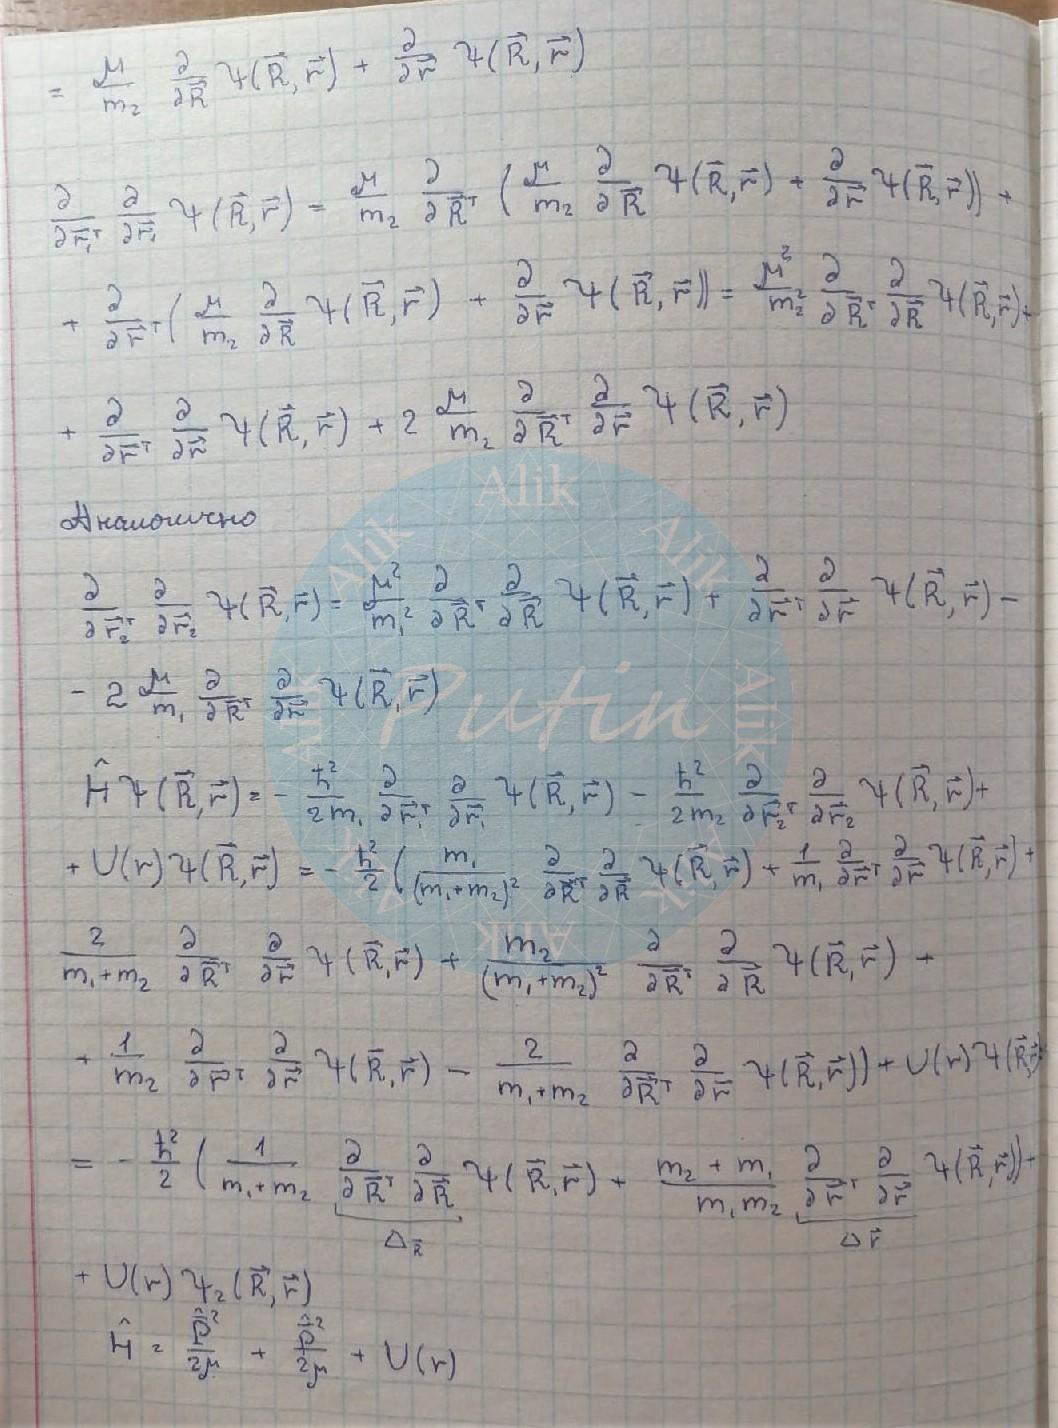 = μ/m₂ ∂/∂R⃗ Ψ(R⃗, r⃗) + ∂/∂r⃗ Ψ(R⃗, r⃗)
∂/∂r⃗₁ᵀ ∂/∂r⃗₁ Ψ(R⃗, r⃗) = μ/m₂ ∂/∂R⃗ᵀ (μ/m₂ ∂/∂R⃗ Ψ(R⃗, r⃗) + ∂/∂r⃗ Ψ(R⃗, r⃗)) +
+ ∂/∂r⃗ᵀ (μ/m₂ ∂/∂R⃗ Ψ(R⃗, r⃗) + ∂/∂r⃗ Ψ(R⃗, r⃗)) = μ²/m₂² ∂/∂R⃗ᵀ ∂/∂R⃗ Ψ(R⃗, r⃗) +
+ ∂/∂r⃗ᵀ ∂/∂r⃗ Ψ(R⃗, r⃗) + 2 μ/m₂ ∂/∂R⃗ᵀ ∂/∂r⃗ Ψ(R⃗, r⃗)
Аналогично
∂/∂r⃗₂ᵀ ∂/∂r⃗₂ Ψ(R⃗, r⃗) = μ²/m₁² ∂/∂R⃗ᵀ ∂/∂R⃗ Ψ(R⃗, r⃗) + ∂/∂r⃗ᵀ ∂/∂r⃗ Ψ(R⃗, r⃗) −
− 2 μ/m₁ ∂/∂R⃗ᵀ ∂/∂r⃗ Ψ(R⃗, r⃗)
Ĥ Ψ(R⃗, r⃗) = − ℏ²/2m₁ ∂/∂r⃗₁ᵀ ∂/∂r⃗₁ Ψ(R⃗, r⃗) − ℏ²/2m₂ ∂/∂r⃗₂ᵀ ∂/∂r⃗₂ Ψ(R⃗, r⃗) +
+ U(r) Ψ(R⃗, r⃗) = − ℏ²/2 (m₁/(m₁+m₂)² ∂/∂R⃗ᵀ ∂/∂R⃗ Ψ(R⃗, r⃗) + 1/m₁ ∂/∂r⃗ᵀ ∂/∂r⃗ Ψ(R⃗, r⃗) +
2/(m₁+m₂) ∂/∂R⃗ᵀ ∂/∂r⃗ Ψ(R⃗, r⃗) + m₂/(m₁+m₂)² ∂/∂R⃗ᵀ ∂/∂R⃗ Ψ(R⃗, r⃗) +
+ 1/m₂ ∂/∂r⃗ᵀ ∂/∂r⃗ Ψ(R⃗, r⃗) − 2/(m₁+m₂) ∂/∂R⃗ᵀ ∂/∂r⃗ Ψ(R⃗, r⃗)) + U(r) Ψ(R⃗, r⃗)
= − ℏ²/2 (1/(m₁+m₂) ∂/∂R⃗ᵀ ∂/∂R⃗ Ψ(R⃗, r⃗) + (m₂+m₁)/(m₁m₂) ∂/∂r⃗ᵀ ∂/∂r⃗ Ψ(R⃗, r⃗)) +
Δ_R⃗ Δ_r⃗
+ U(r) Ψ₂(R⃗, r⃗)
Ĥ = P̂²/2μ + p̂²/2μ + U(r)
Alik
Alik
Alik
Alik
Alik
Alik
Alik
Alik
Putin